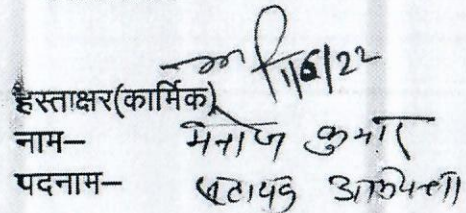 1/6/22
हस्ताक्षर(कार्मिक)
नाम– मनोज कुमार
पदनाम– सहायक अभियन्ता